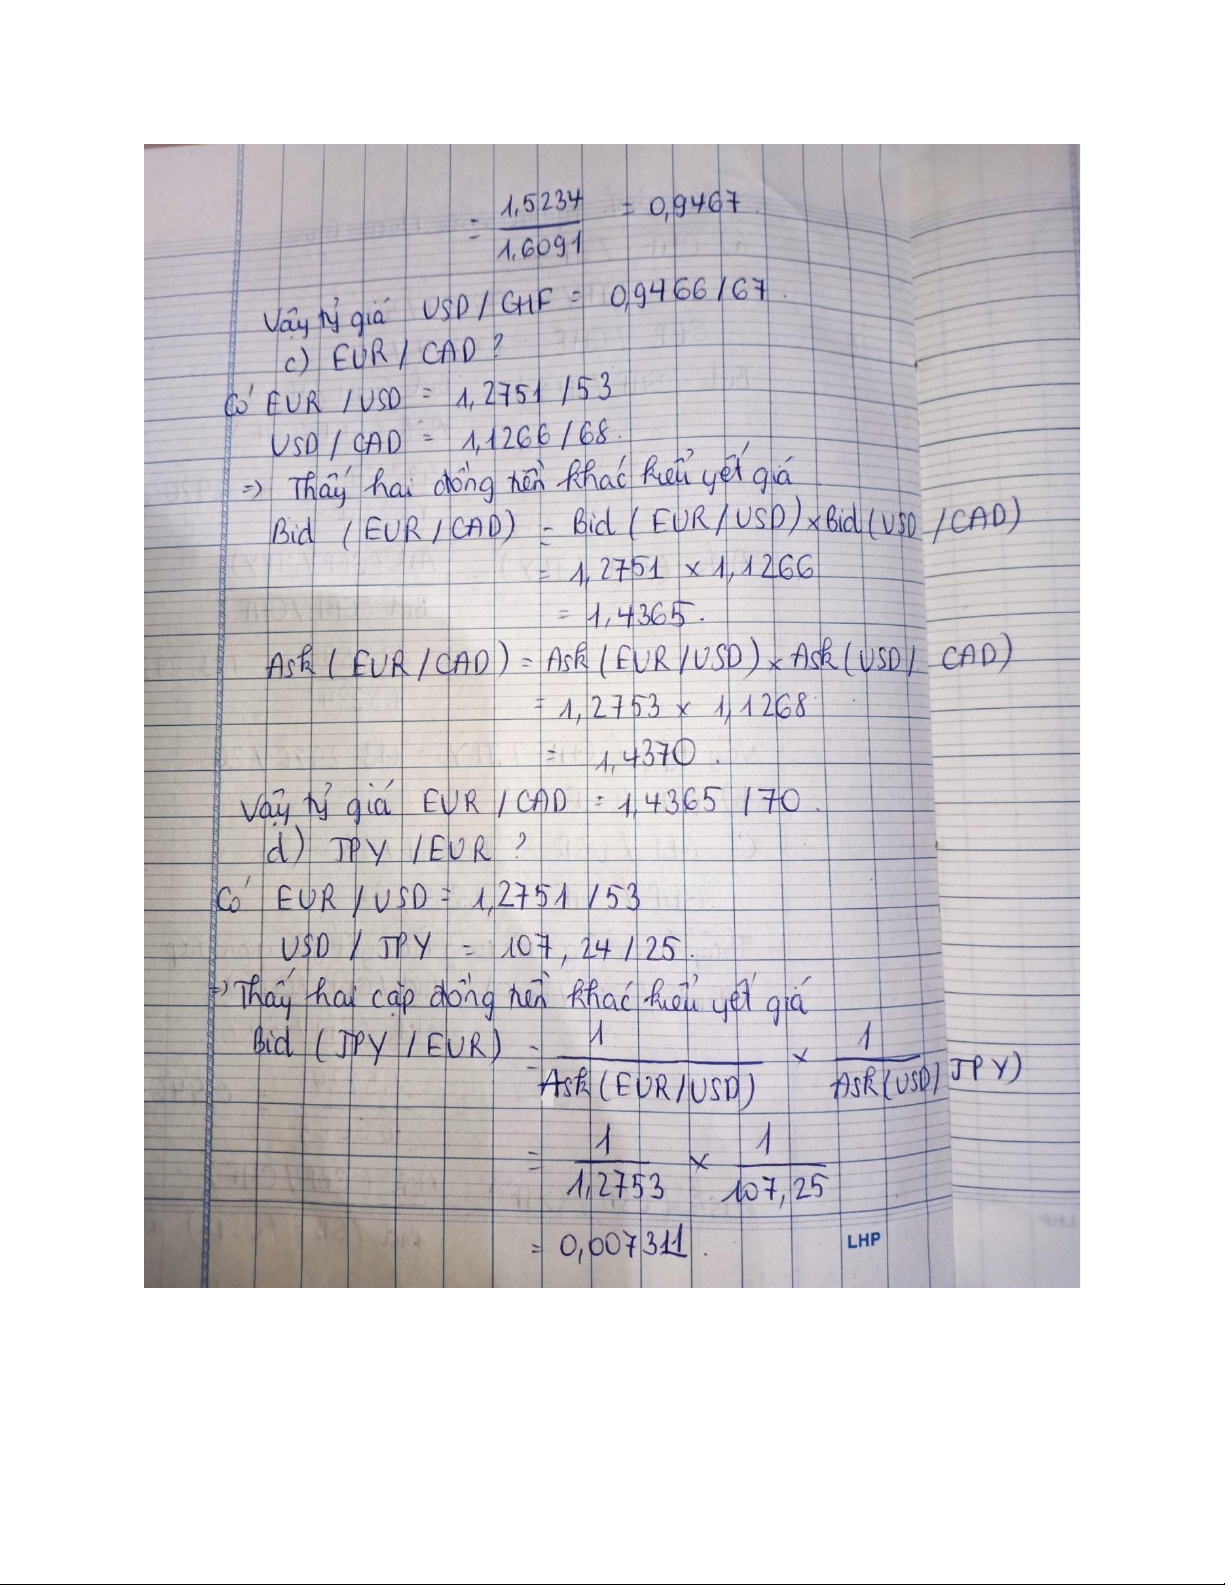 = 1,5234 / 1,6091 = 0,9467.
Vậy tỷ giá USD / CHF = 0,9466 / 67.
c) EUR / CAD ?
Có EUR / USD = 1,2751 / 53
USD / CAD = 1,1266 / 68.
=> Thấy hai đồng tiền khác kiểu yết giá
Bid (EUR / CAD) = Bid (EUR / USD) × Bid (USD / CAD)
= 1,2751 × 1,1266
= 1,4365.
Ask (EUR / CAD) = Ask (EUR / USD) × Ask (USD / CAD)
= 1,2753 × 1,1268
= 1,4370.
Vậy tỷ giá EUR / CAD = 1,4365 / 70.
d) JPY / EUR ?
Có EUR / USD = 1,2751 / 53
USD / JPY = 107,24 / 25.
=> Thấy hai cặp đồng tiền khác kiểu yết giá
Bid (JPY / EUR) = 1 / Ask (EUR / USD) × 1 / Ask (USD / JPY)
= 1 / 1,2753 × 1 / 107,25
= 0,007311.
LHP